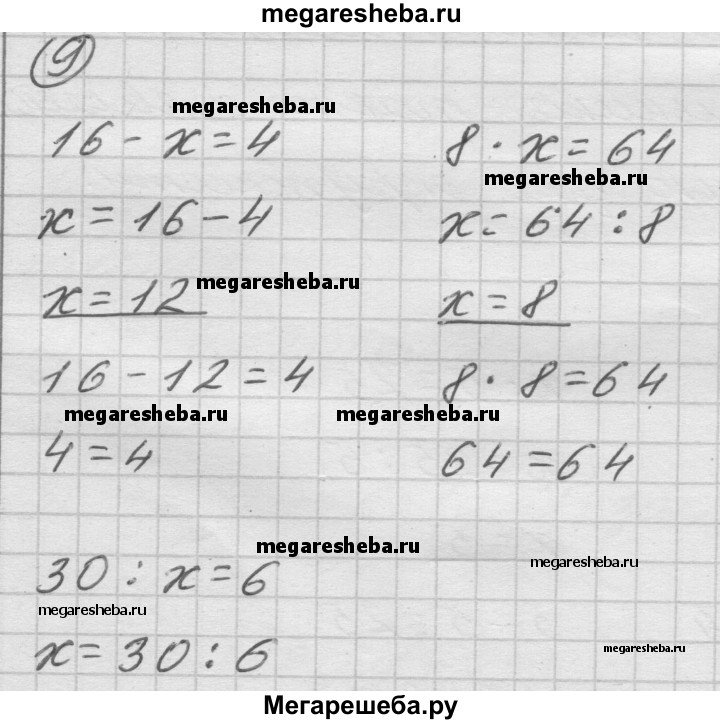 megaresheba.ru
9
megaresheba.ru
16 - x = 4
x = 16 - 4
x = 12
megaresheba.ru
16 - 12 = 4
megaresheba.ru
4 = 4
8 · x = 64
megaresheba.ru
x = 64 : 8
x = 8
8 · 8 = 64
megaresheba.ru
64 = 64
megaresheba.ru
30 : x = 6
megaresheba.ru
megaresheba.ru
x = 30 : 6
megaresheba.ru
Мегарешеба.ру